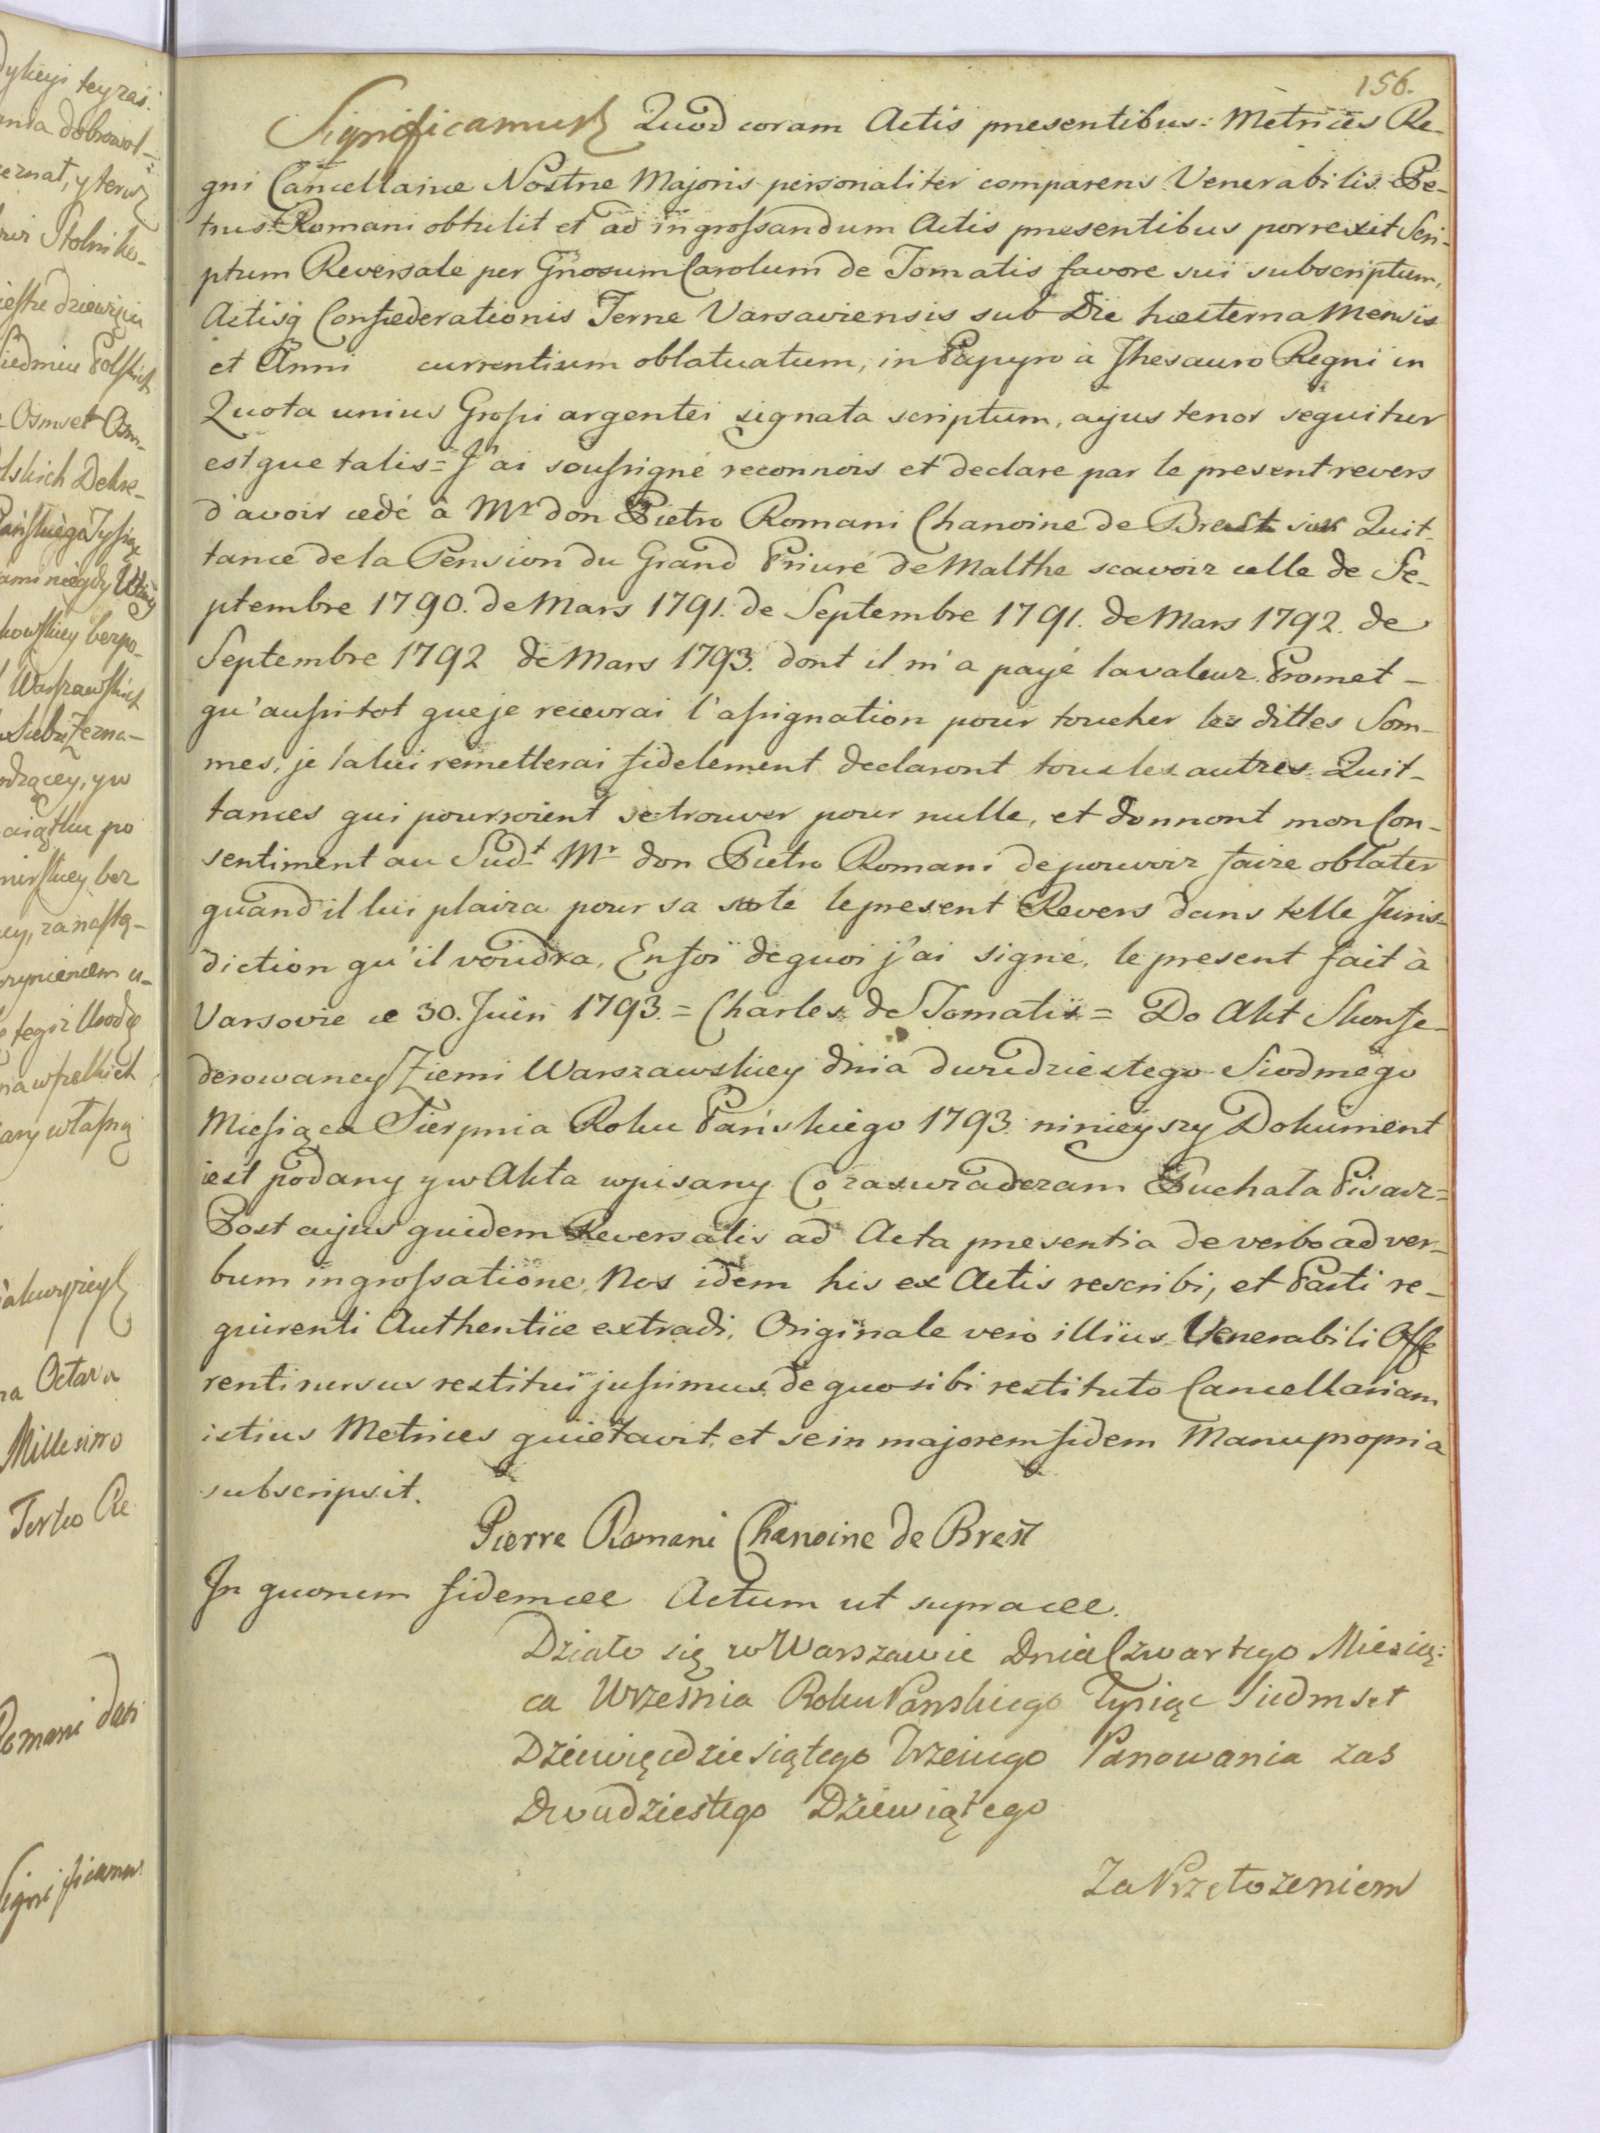 dykcyi tey zaś
dobrowol-
czenat, y teraz
Stolnika-
dziewięciu
siedmiu Polskich
Osmset Osm-
olskich Dekre-
Pańskiego Tysiąc
ami niegdy
kowskiey bezpo-
Warszawskich
Zezna-
odzącey, yw
po
bez
zanastą-
u-
tegoż
wszelkich
własną
Octava
Millesimo
Tertio Re
Romani
Significamus
156.
Significamus Quod coram Actis presentibus: Metrices Re-
gni Cancellariæ Nostræ Majoris personaliter comparens Venerabilis Pe-
trus Romani obtulit et ad ingrossandum Actis presentibus porrexit Scri-
ptum Reversale per Gnosum Carolum de Tomatis favore sui subscriptum,
Actisq Confæderationis Terræ Varsaviensis sub Die hæsterna Mensis
et Anni currentium oblatuatum, in Papyro à Thesauro Regni in
Quota unius Grossi argentei signata scriptum, cujus tenor sequitur
estque talis = J'ai soussigné reconnois et declare par le present revers
d'avoir cedé à Mr don Pietro Romani Chanoine de Brest six Quit-
tance de la Pension du Grand Prieuré de Malthe scavoir celle de Se-
ptembre 1790. de Mars 1791. de Septembre 1791. de Mars 1792. de
Septembre 1792 de Mars 1793. dont il m'a payé la valeur. Promet-
qu'aussitot que je recevrai l'assignation pour toucher les dittes Som-
mes, je la lui remetterai fidelement declaront tous les autres Quit-
tances qui pourroient se trouver pour nulle, et donnont mon Con-
sentiment au Sudt Mr don Pietro Romani de pouvoir faire oblater
quand il lui plaira pour sa sureté le present Revers dans telle Juris-
diction qu'il voudra, En foi de quoi j'ai signé, le present fait à
Varsovie ce 30. Juin 1793. = Charles de Tomatis = Do Akt Skonfe-
derowaney Ziemi Warszawskiey dnia dwudziestego Siodmego
Miesiąca Sierpnia Roku Pańskiego 1793 ninieyszy Dokument
iest podany y w Akta wpisany Co zaswiadczam Puchała Pisarz =
Post cujus quidem Reversalis ad Acta presentia de verbo ad ver-
bum ingrossatione, Nos idem his ex Actis rescribi, et Parti re-
quirenti Authentice extradi. Originale vero illius Venerabili Offe
renti rursus restitui jussimus, de quo sibi restituto Cancellariam
istius Metrices quietavit, et se in majorem fidem Manu propria
subscripsit.
Pierre Romani Chanoine de Brest
In quorum fidem &&& Actum ut supra &&&.
Działo się w Warszawie Dnia Czwartego Miesią:
ca Września Roku Pańskiego Tysiąc Siedmset
Dziewięćdziesiątego Trzeciego Panowania zaś
Dwudziestego Dziewiątego
Za Przełożeniem